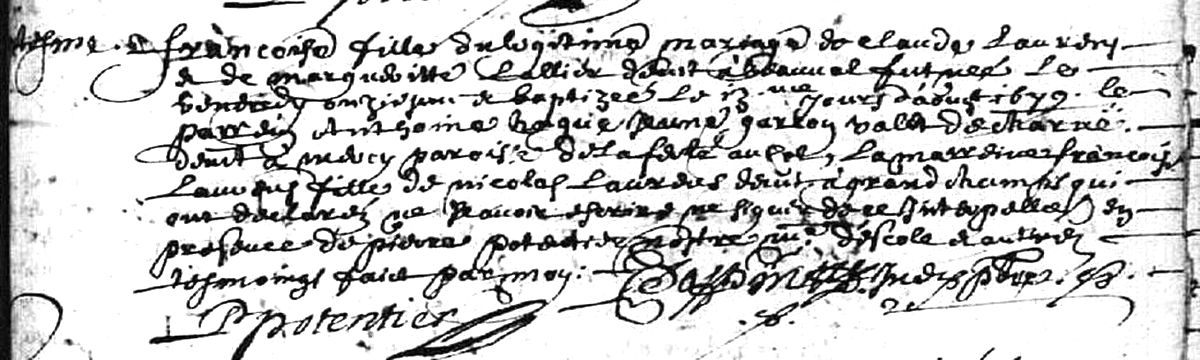 francoise fille du legitime mariage de claude Laurens
& de margueritte Lallier demt a beauval fut nee le
vendredy onziesme & baptizee le 13 me jours d'aoust 1679. le
parrein Anthoine jeune garcon valet de charue.
demt a mercy paroisse de la ferte la marreine francoise
Laurens fille de nicolas Laurens demt a grand champs qui
ont declarez ne scavoir escrire ne signer de ce Interpellez en
presence de pierre potentier nostre me d'escole & autres
tesmoings faict par moy.
P potentier